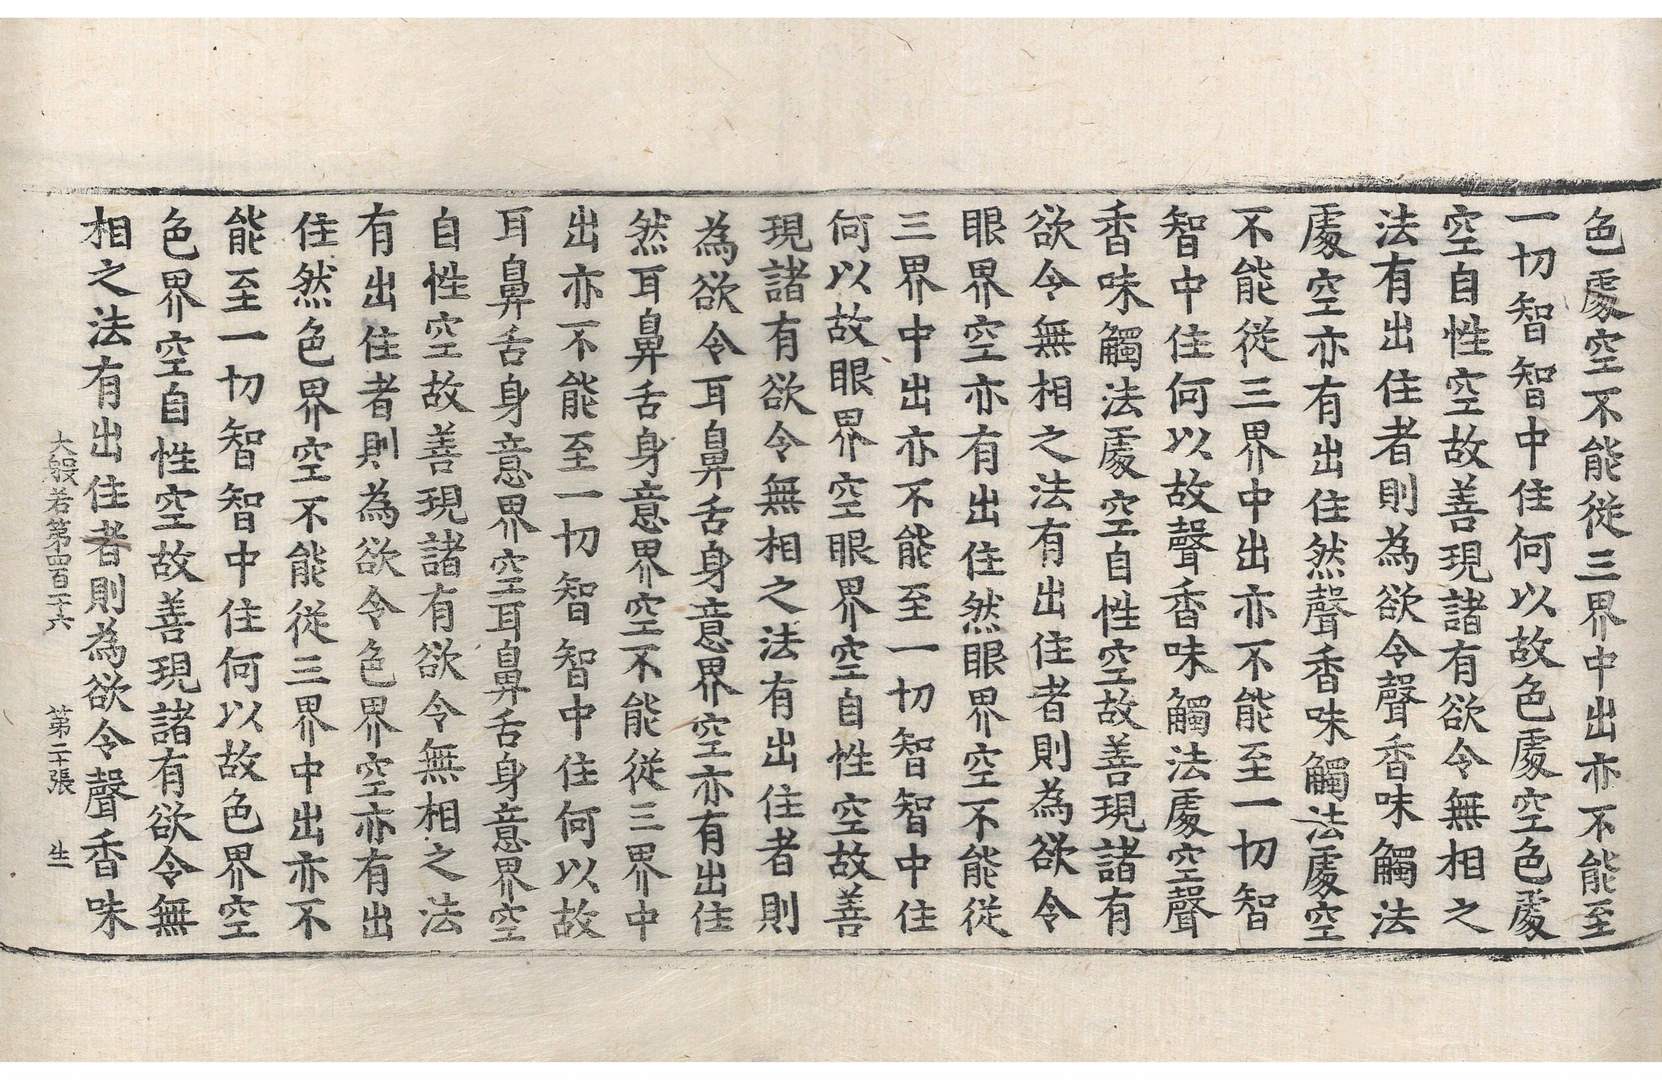 色處空不能從三界中出亦不能至
一切智智中住何以故色處空色處
空自性空故善現諸有欲令無相之
法有出住者則為欲令聲香味觸法
處空亦有出住然聲香味觸法處空
不能從三界中出亦不能至一切智
智中住何以故聲香味觸法處空聲
香味觸法處空自性空故善現諸有
欲令無相之法有出住者則為欲令
眼界空亦有出住然眼界空不能從
三界中出亦不能至一切智智中住
何以故眼界空眼界空自性空故善
現諸有欲令無相之法有出住者則
為欲令耳鼻舌身意界空亦有出住
然耳鼻舌身意界空不能從三界中
出亦不能至一切智智中住何以故
耳鼻舌身意界空耳鼻舌身意界空
自性空故善現諸有欲令無相之法
有出住者則為欲令色界空亦有出
住然色界空不能從三界中出亦不
能至一切智智中住何以故色界空
色界空自性空故善現諸有欲令無
相之法有出住者則為欲令聲香味
大般若第四百一十六 第二十張 生